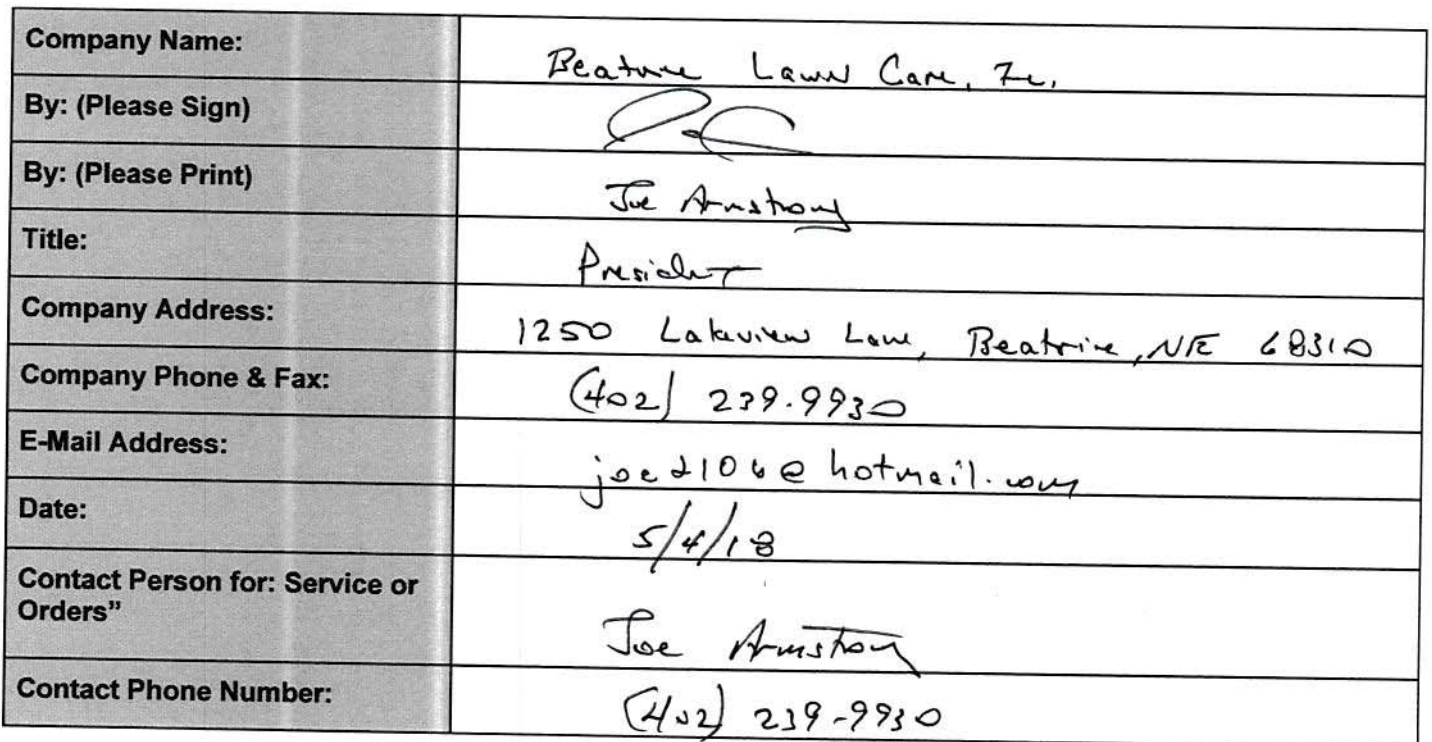 Company Name: Beatrice Lawn Care, Inc.
By: (Please Sign)
By: (Please Print) Joe Armstrong
Title: President
Company Address: 1250 Lakeview Lane, Beatrice, NE 68310
Company Phone & Fax: (402) 239-9930
E-Mail Address: joe2106@hotmail.com
Date: 5/4/18
Contact Person for: Service or
Orders" Joe Armstrong
Contact Phone Number: (402) 239-9930